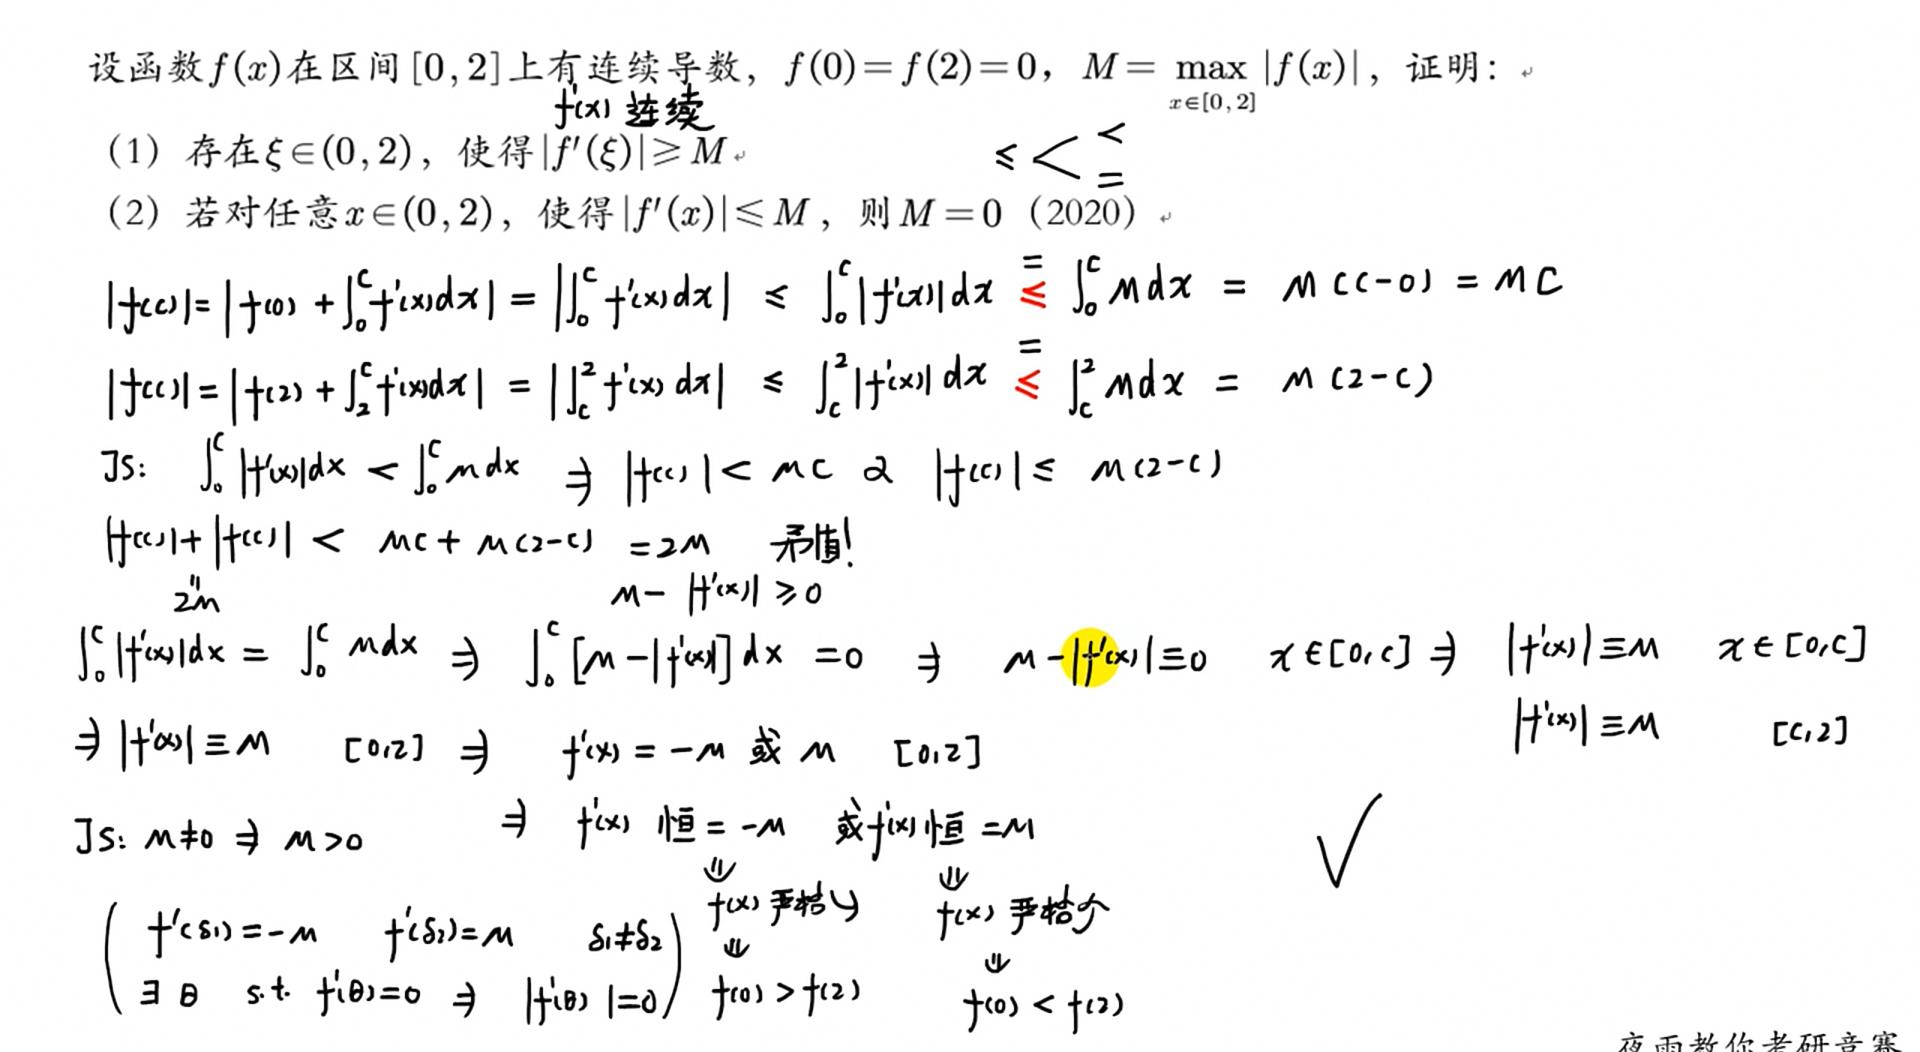 设函数f(x)在区间[0,2]上有连续导数，f(0)=f(2)=0，M=max|f(x)|，证明：
x∈[0,2]
f'(x) 连续
（1）存在ξ∈(0,2)，使得|f'(ξ)|≥M
≤ < < =
（2）若对任意x∈(0,2)，使得|f'(x)|≤M，则M=0（2020）
|f(c)|=|f(0)+∫₀ᶜf'(x)dx|=|∫₀ᶜf'(x)dx| ≤ ∫₀ᶜ|f'(x)|dx = ≤ ∫₀ᶜMdx = M(c-0) = MC
|f(c)|=|f(2)+∫₂ᶜf'(x)dx|=|∫_c²f'(x)dx| ≤ ∫_c²|f'(x)|dx = ≤ ∫_c²Mdx = M(2-c)
JS: ∫₀ᶜ|f'(x)|dx < ∫₀ᶜMdx ⇒ |f(c)|< MC 又 |f(c)|≤ M(2-c)
|f(c)|+|f(c)| < MC+M(2-c) =2M 矛盾!
"
2M
M-|f'(x)|≥0
∫₀ᶜ|f'(x)|dx = ∫₀ᶜMdx ⇒ ∫₀ᶜ[M-|f'(x)|]dx =0 ⇒ M-|f'(x)|≡0 x∈[0,c] ⇒ |f'(x)|≡M x∈[0,c]
|f'(x)|≡M [c,2]
⇒ |f'(x)|≡M [0,2] ⇒ f'(x)=-M 或 M [0,2]
JS: M≠0 ⇒ M>0
⇒ f'(x) 恒=-M 或f'(x)恒=M
⇓ ⇓
f(x)严格↘ f(x)严格↗
⇓ ⇓
f(0)>f(2) f(0)<f(2)
( f'(δ₁)=-M f'(δ₂)=M δ₁≠δ₂
∃ θ s.t. f'(θ)=0 ⇒ |f'(θ)|=0 )
√
夜雨教你考研竞赛